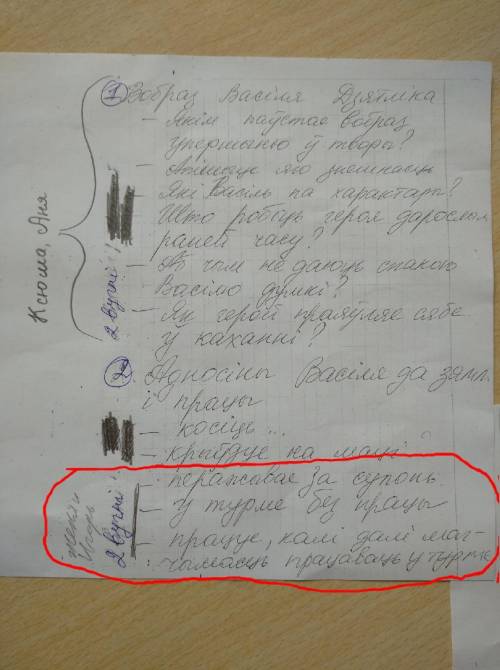 Ксюша, Аня
① Вобраз Васіля Дзятліка
- Якім паўстае вобраз
упершыню ў творы?
- Апішыце яго знешнасць
- Які Васіль па характары?
Што робіць героя дарослым
раней часу?
- Аб чым не даюць спакою
Васілю думкі?
- Як герой праяўляе сябе
ў каханні?
2 вучні
② Адносіны Васіля да зямл
і працы
- косіць...
- крыўдуе на маці
- перажывае за супонь
- у турме без працы
- працуе, калі далі маг-
чымасць працаваць у турме
Ігорь
2 вучні